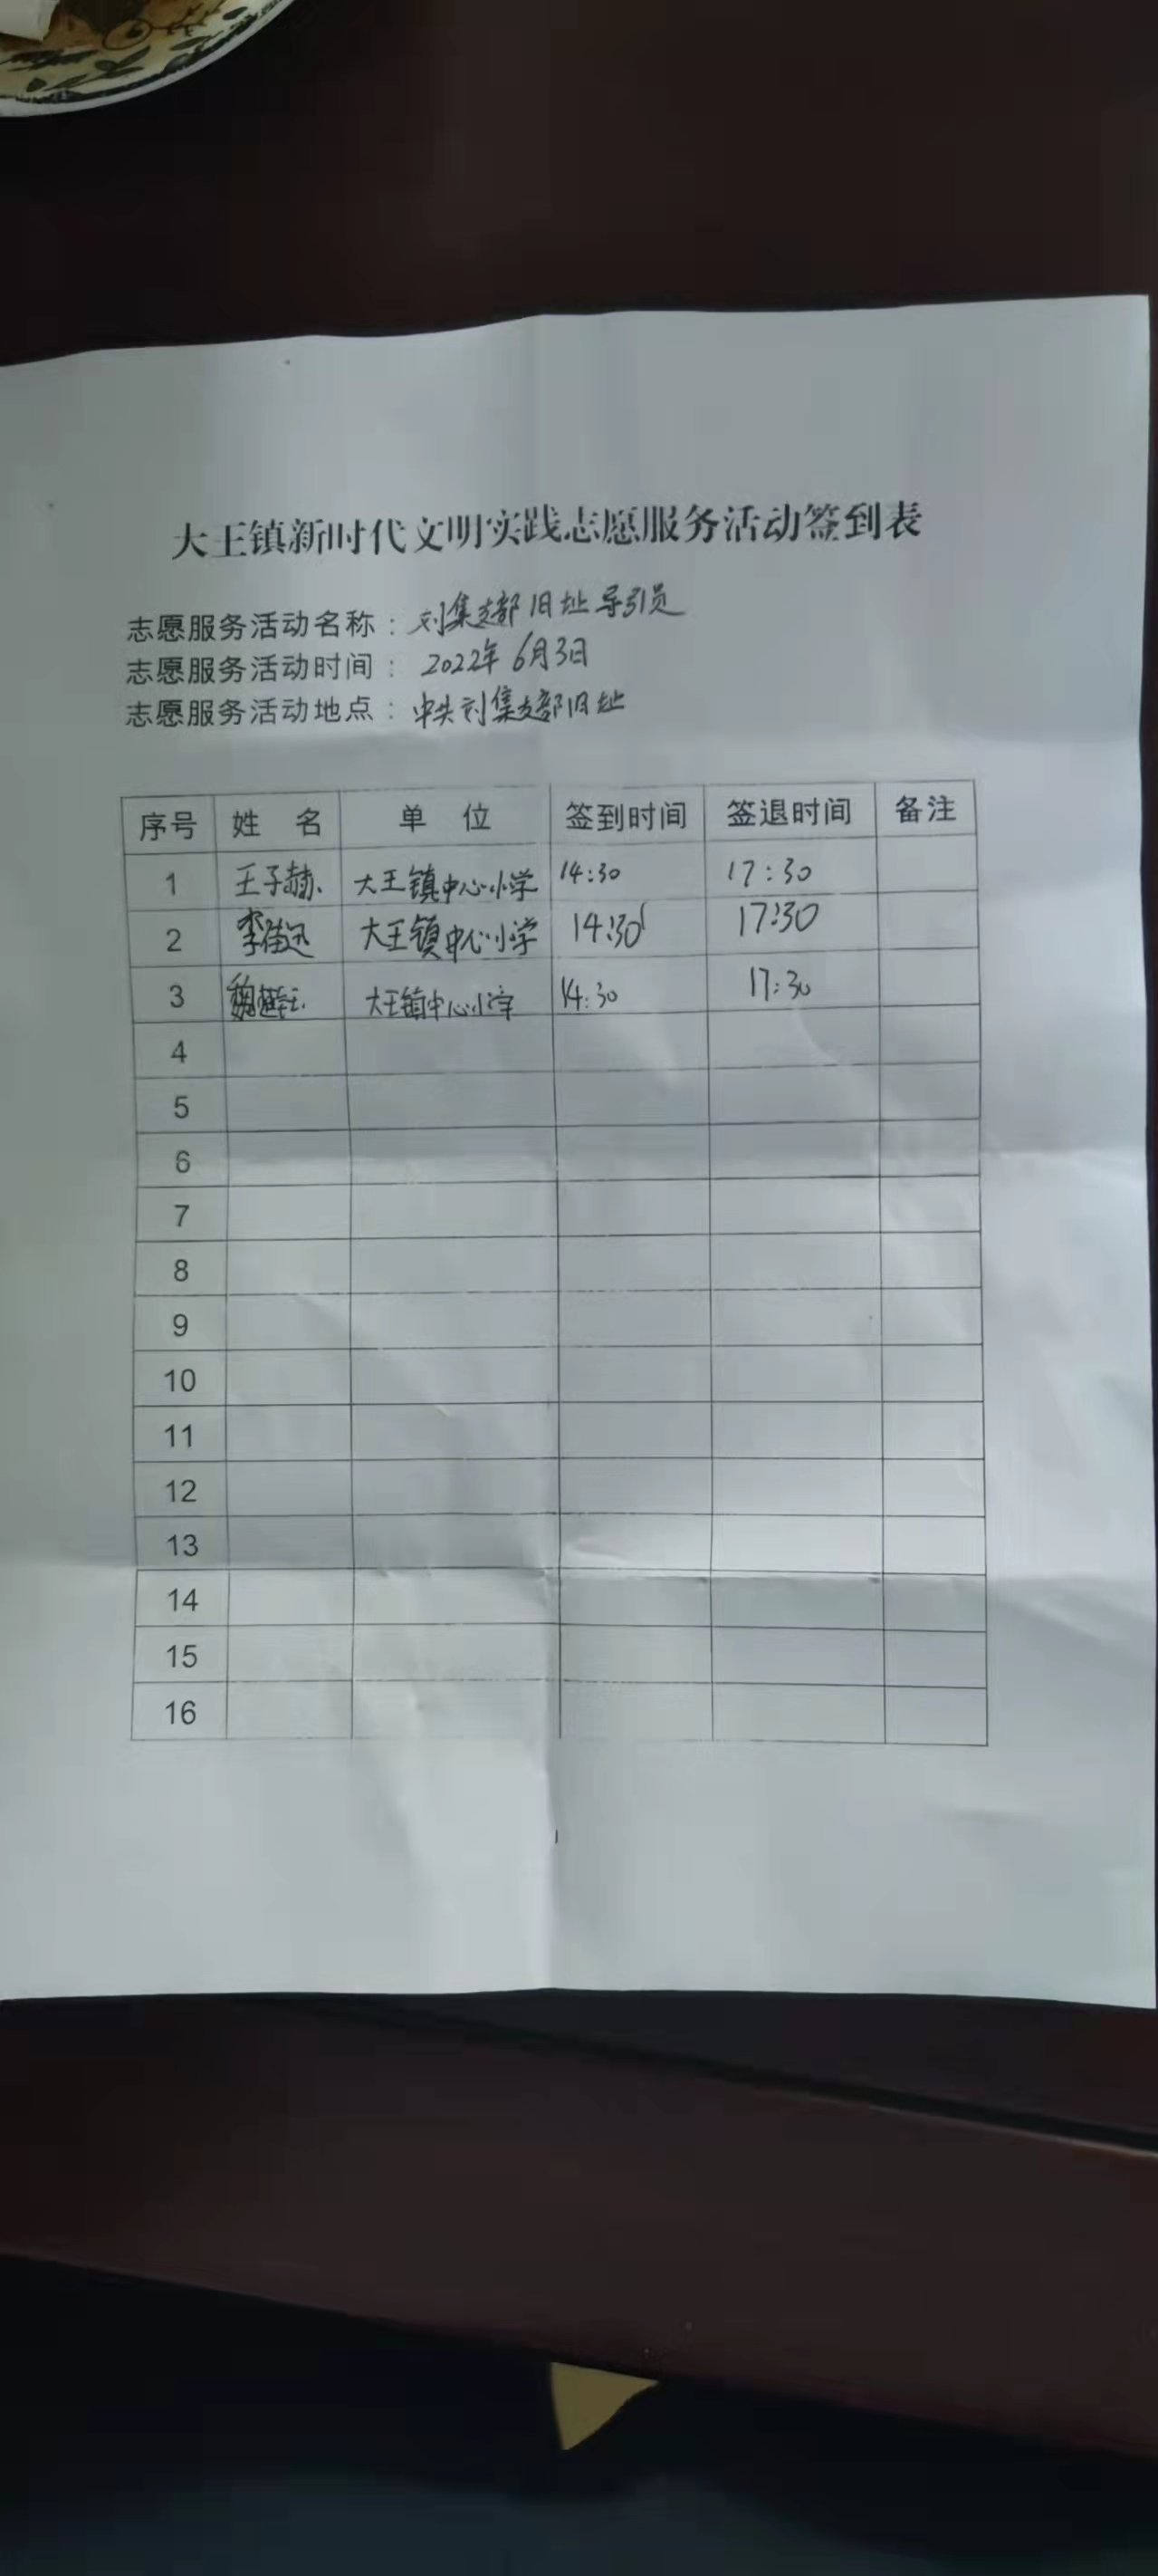 大王镇新时代文明实践志愿服务活动签到表
志愿服务活动名称：刘集支部旧址导引员
志愿服务活动时间：2022年6月3日
志愿服务活动地点：中共刘集支部旧址
序号 姓名 单位 签到时间 签退时间 备注
1 王子赫 大王镇中心小学 14:30 17:30
2 大王镇中心小学 14:30 17:30
3 大王镇中心小学 14:30 17:30
4
5
6
7
8
9
10
11
12
13
14
15
16